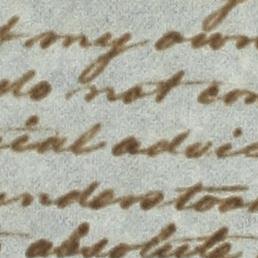 t my own
do not con
cial advic
understood
absolute